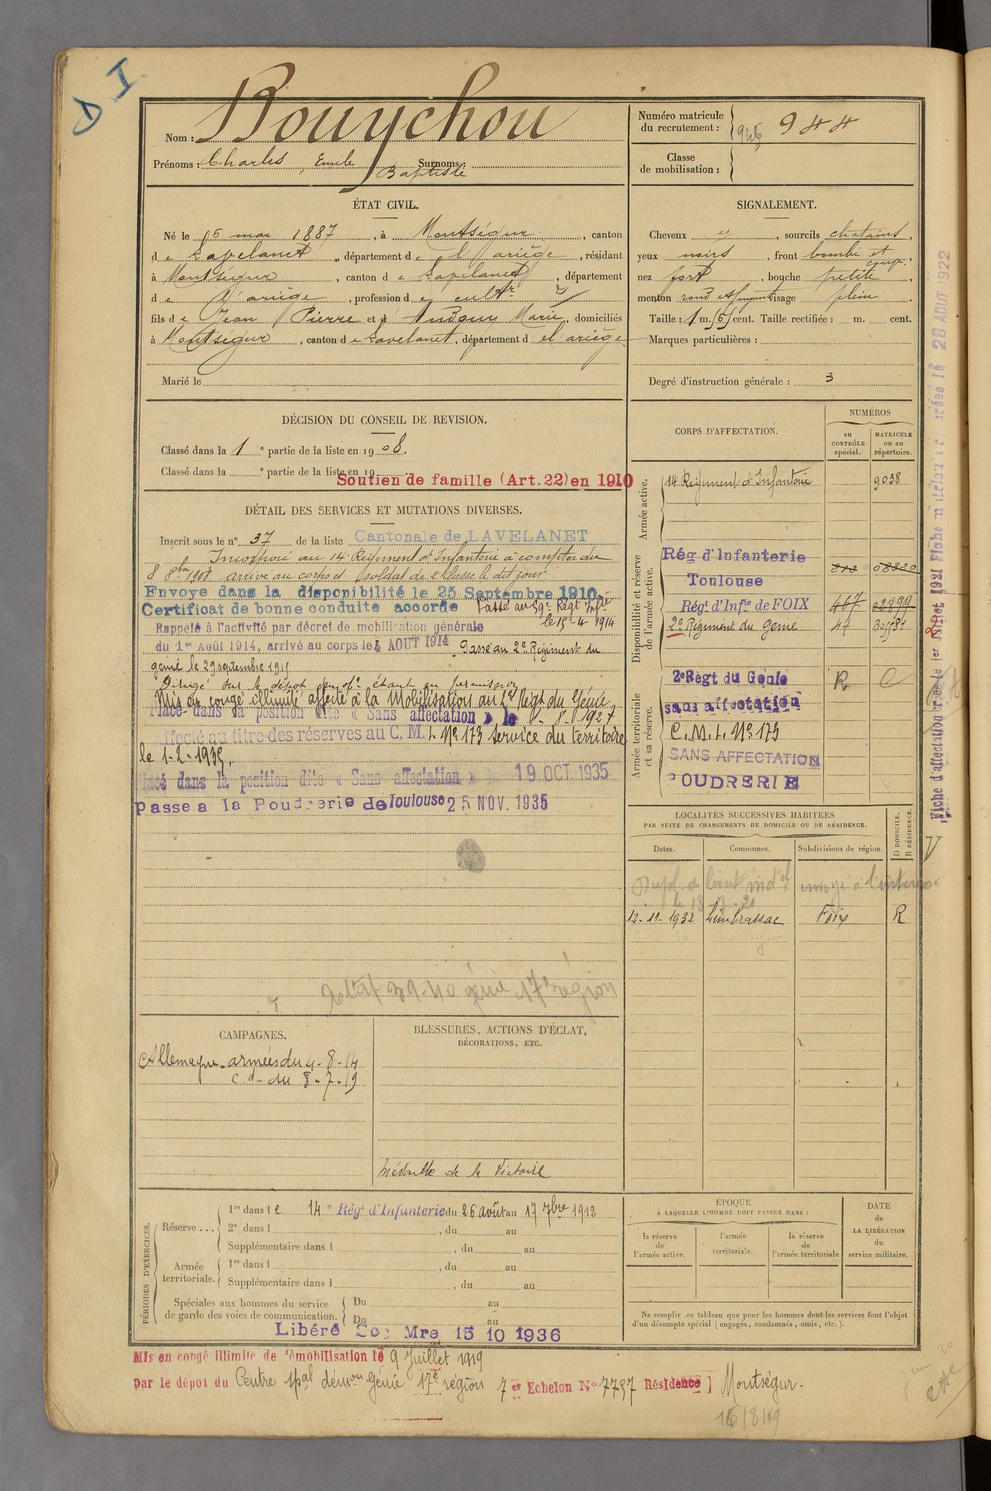 D I
Nom : Bouychou
Prénoms : Charles, Emile Surnoms :
Baptiste
Numéro matricule
du recrutement : 944
Classe
de mobilisation :
ÉTAT CIVIL.
Né le 15 mai 1887, à Montségur, canton
de Lavelanet, département de l'Ariège, résidant
à Montségur, canton de Lavelanet, département
de l'Ariège, profession de cultr
fils de Jean Pierre et d' Marie, domiciliés
à Montségur, canton de Lavelanet, département de l'ariège
Marié le
SIGNALEMENT.
Cheveux et, sourcils chatains,
yeux noirs, front bombé et
nez fort, bouche petite,
menton rond visage plein.
Taille : 1 m. 51 cent. Taille rectifiée : m. cent.
Marques particulières :
Degré d'instruction générale : 3
DÉCISION DU CONSEIL DE REVISION.
Classé dans la 1e partie de la liste en 1908.
Classé dans la e partie de la liste en 19
Soutien de famille (Art. 22) en 1910
DÉTAIL DES SERVICES ET MUTATIONS DIVERSES.
Inscrit sous le n° 37 de la liste Cantonale de LAVELANET
Incorporé au 14e Régiment d'Infanterie à compter du
8 8bre 1908. arrivé au corps et soldat de 2e classe le dit jour
Envoyé dans la disponibilité le 25 Septembre 1910.
Certificat de bonne conduite accordé Passé au 59e Régt Infie
le 15-4-1914
Rappelé à l'activité par décret de mobilisation générale
du 1er Août 1914, arrivé au corps le 4 AOUT 1914 Passé au 2e Régiment du
génie le 29 septembre 1915
Dirigé sur le dépôt étant en permission
Mis en congé illimité affecté à la Mobilisation au 2e Régt du Génie
Placé dans la position dite « Sans affectation » le 1-8-1927
Affecté au titre des réserves au C. M. I. No 173 Service du territoire
le 1-2-1935.
Placé dans la position dite « Sans affectation » le 19 OCT. 1935
passé à la Poudrerie de Toulouse 25 NOV. 1935
CORPS D'AFFECTATION.
NUMÉROS
au
CONTRÔLE
spécial.
MATRICULE
ou au
répertoire.
Armée active.
14 Régiment d'Infanterie 9038
Disponibilité et réserve
de l'armée active.
Rég d'Infanterie
Toulouse
Régt d'Infie de FOIX 467 22899
2e Régiment du Génie
Armée territoriale
et sa réserve.
2e Régt du Génie R C
sans affectation
C.M.I. No 173
SANS AFFECTATION
POUDRERIE
LOCALITÉS SUCCESSIVES HABITÉES
PAR SUITE DE CHANGEMENTS DE DOMICILE OU DE RÉSIDENCE.
Dates. Communes. Subdivisions de région. D DOMICILE. R RÉSIDENCE.
12-11-1932 Limbrassac Foix R
génie 17e région
CAMPAGNES.
Allemagne armées du 4-8-14
au 8-7-19
BLESSURES, ACTIONS D'ÉCLAT,
DÉCORATIONS, ETC.
Médaille de la Victoire
PÉRIODES D'EXERCICES.
Réserve ... 1re dans le 14e Régt d'Infanterie du 26 août au 17 7bre 1912
2e dans l , du au
Supplémentaire dans l , du au
Armée
territoriale. 1re dans l , du au
Supplémentaire dans l , du au
Spéciales aux hommes du service
de garde des voies de communication. Du au
Du au
Libéré Sce Mre 15 10 1936
ÉPOQUE
À LAQUELLE L'HOMME DOIT PASSER DANS :
la réserve
de
l'armée active.
l'armée
territoriale.
la réserve
de
l'armée territoriale
DATE
de
LA LIBÉRATION
du
service militaire.
Ne remplir ce tableau que pour les hommes dont les services font l'objet
d'un décompte spécial (engagés, condamnés, omis, etc.).
Mis en congé illimité de démobilisation le 9 Juillet 1919
par le dépôt du Centre spal démon Génie 17e région 7 er Echelon No 7797 Résidence Montségur.
16/8/19